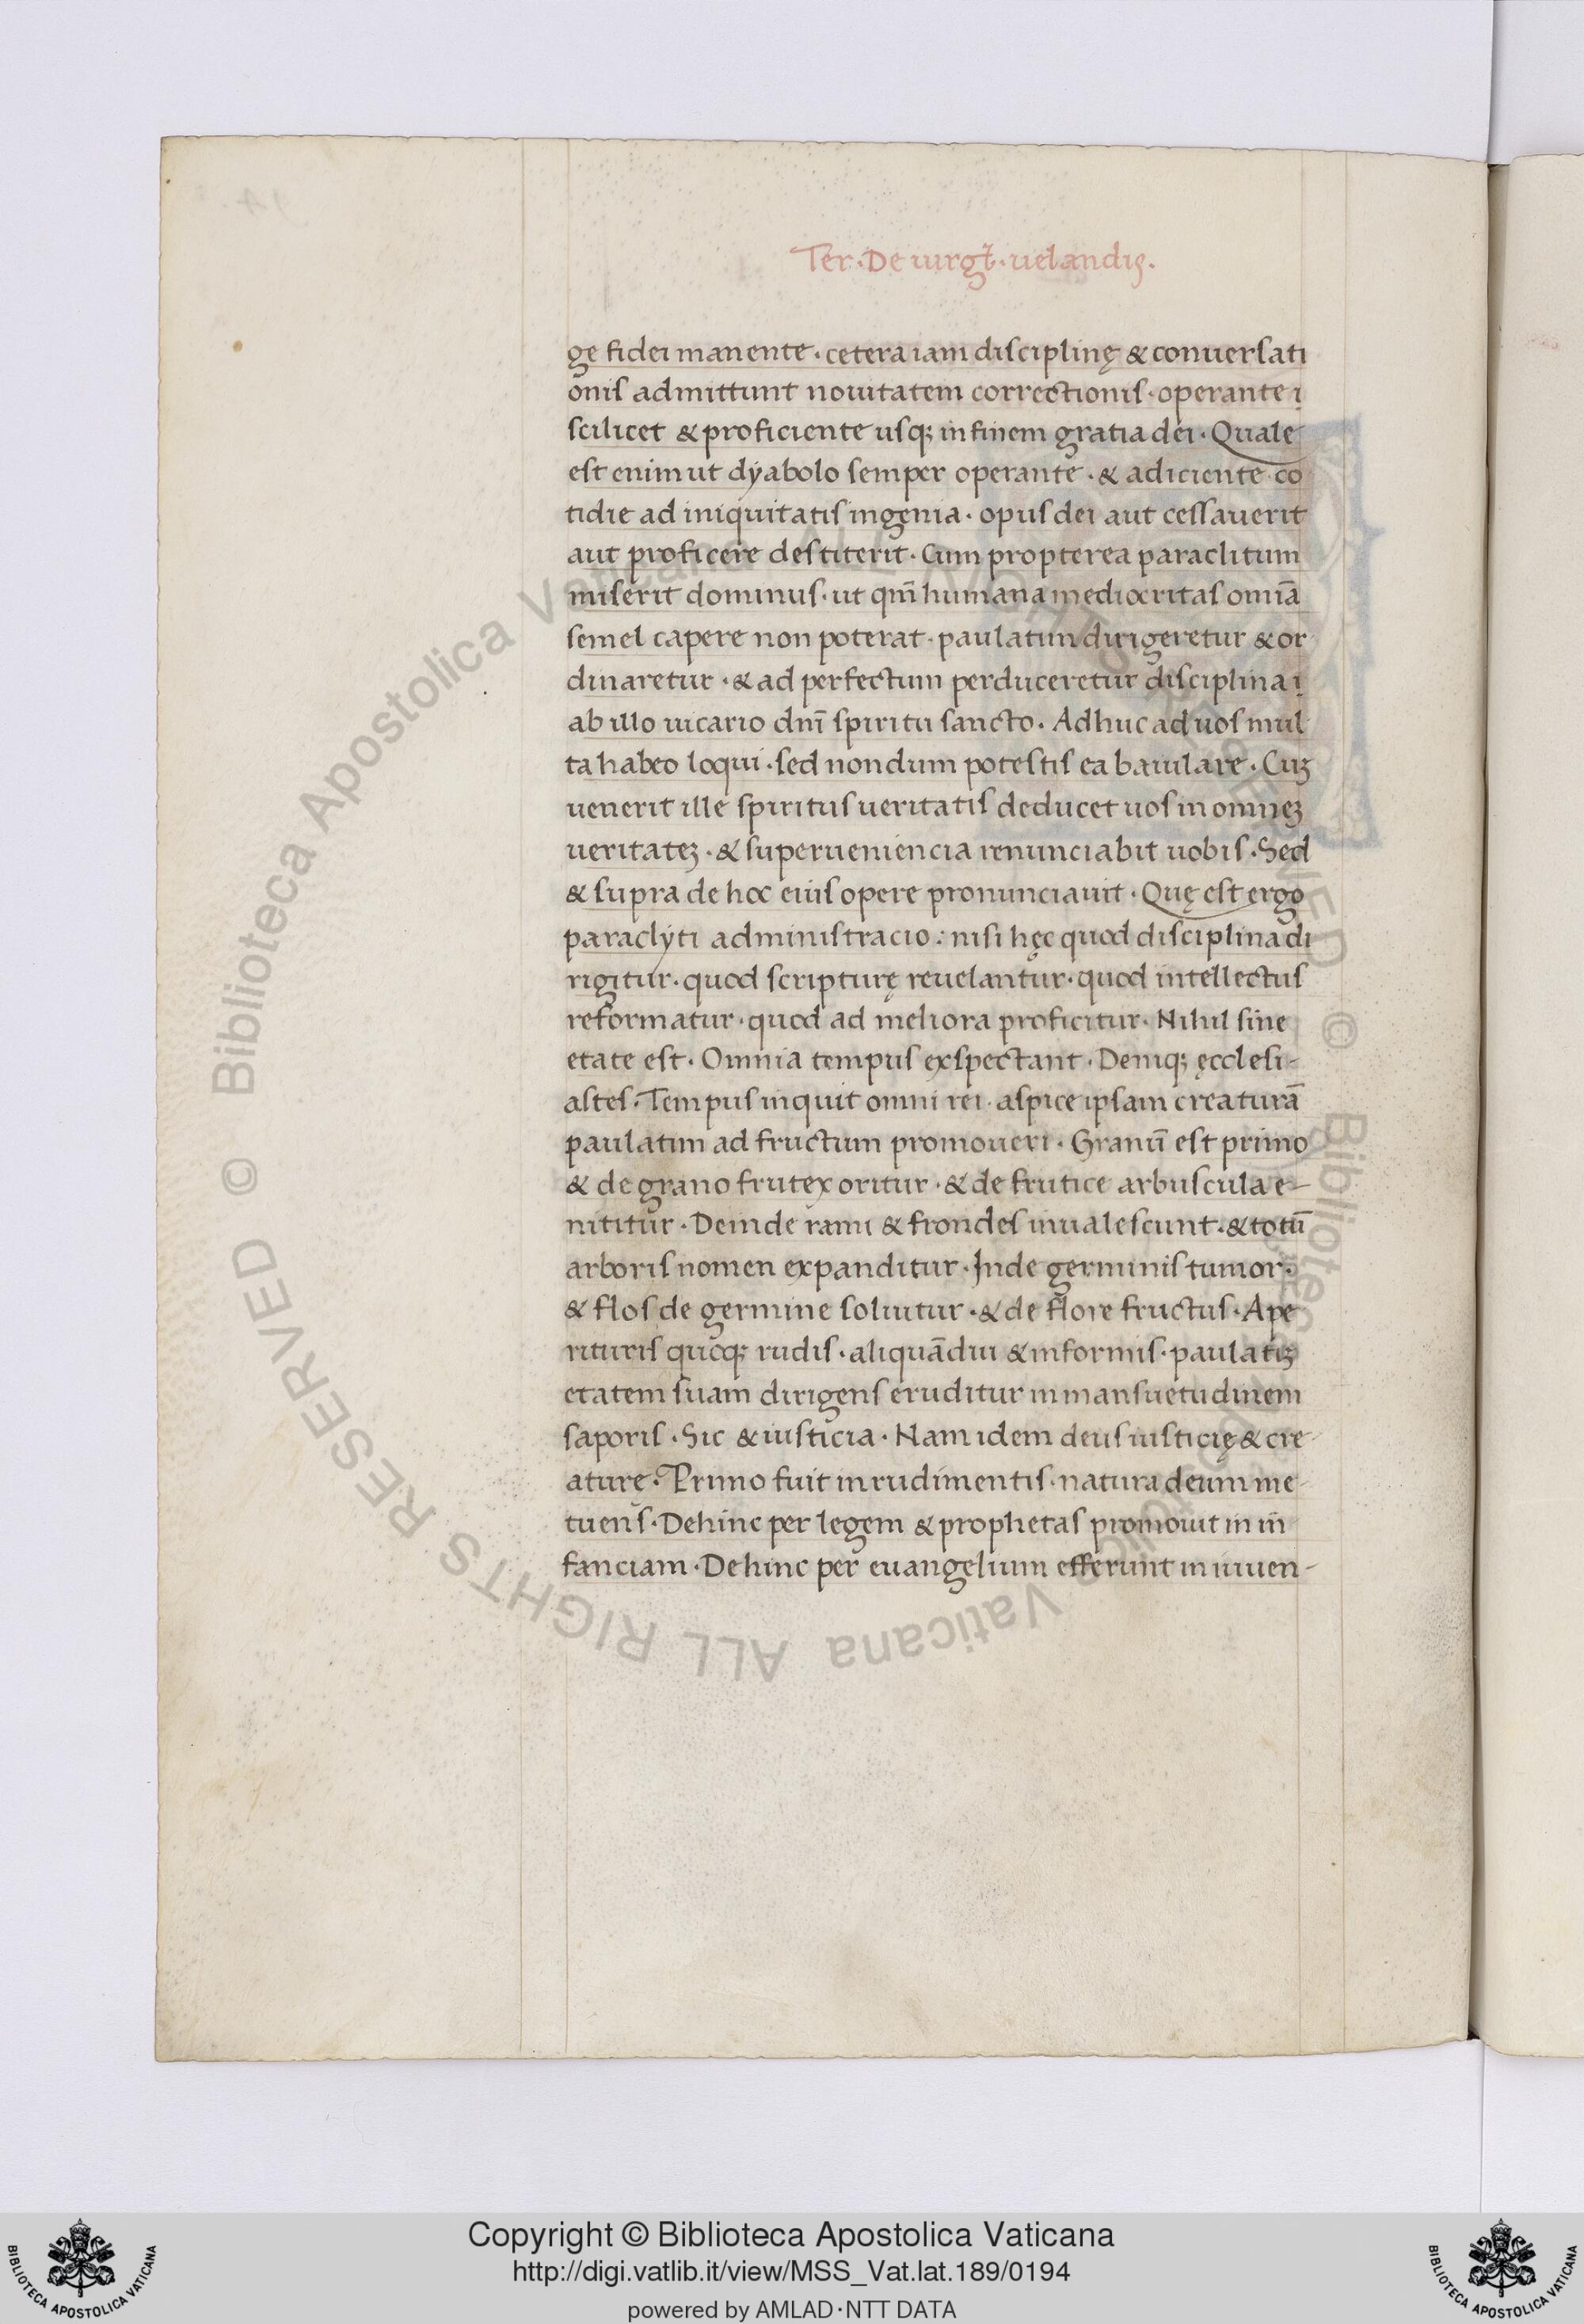 Ter. De uirg̃t. uelandis.
ge fidei manente. cetera iam disciplinę & conuersati
onis admittunt nouitatem correctionis. operante i
scilicet & proficiente usq; in finem gratia dei. Quale
est enim ut dyabolo semper operante. & adiciente co
tidie ad iniquitatis ingenia. opus dei aut cessauerit
aut proficere destiterit. Cum propterea paraclitum
miserit dominus. ut qm̄ humana mediocritas omīa
semel capere non poterat. paulatim dirigeretur & or
dinaretur. & ad perfectum perduceretur disciplina i
ab illo uicario dn̄i spiritu sancto. Adhuc ad uos mul
ta habeo loqui. sed nondum potestis ea baiulare. Cuʒ
uenerit ille spiritus ueritatis deducet uos in omneʒ
ueritateʒ. & superueniencia renunciabit uobis. Sed
& supra de hoc eius opere pronunciauit. Quę est ergo
paraclyti administracio: nisi hęc quod disciplina di
rigitur. quod scripturę reuelantur. quod intellectus
reformatur. quod ad meliora proficitur. Nihil sine
etate est. Omnia tempus exspectant. Deniq; ęcclesi-
astes. Tempus inquit omni rei. aspice ipsam creaturā
paulatim ad fructum promoueri. Granū est primo
& de grano frutex oritur. & de frutice arbuscula e-
nititur. Deinde rami & frondes inualescunt. & totū
arboris nomen expanditur. Inde germinis tumor.
& flos de germine soluitur. & de flore fructus. Ape
rituris quoq; rudis. aliquādiu & informis. paulatiʒ
etatem suam dirigens eruditur in mansuetudinem
saporis. Sic & iusticia. Nam idem deus iusticię & cre-
ature. Primo fuit in rudimentis. natura deum me-
tuens. Dehinc per legem & prophetas promouit in in
fanciam. Dehinc per euangelium efferunt in iuuen-
© Biblioteca Apostolica Vaticana ALL RIGHTS RESERVED
© Biblioteca Apostolica Vaticana ALL RIGHTS RESERVED
Copyright © Biblioteca Apostolica Vaticana
http://digi.vatlib.it/view/MSS_Vat.lat.189/0194
powered by AMLAD·NTT DATA
BIBLIOTECA APOSTOLICA VATICANA
BIBLIOTECA APOSTOLICA VATICANA